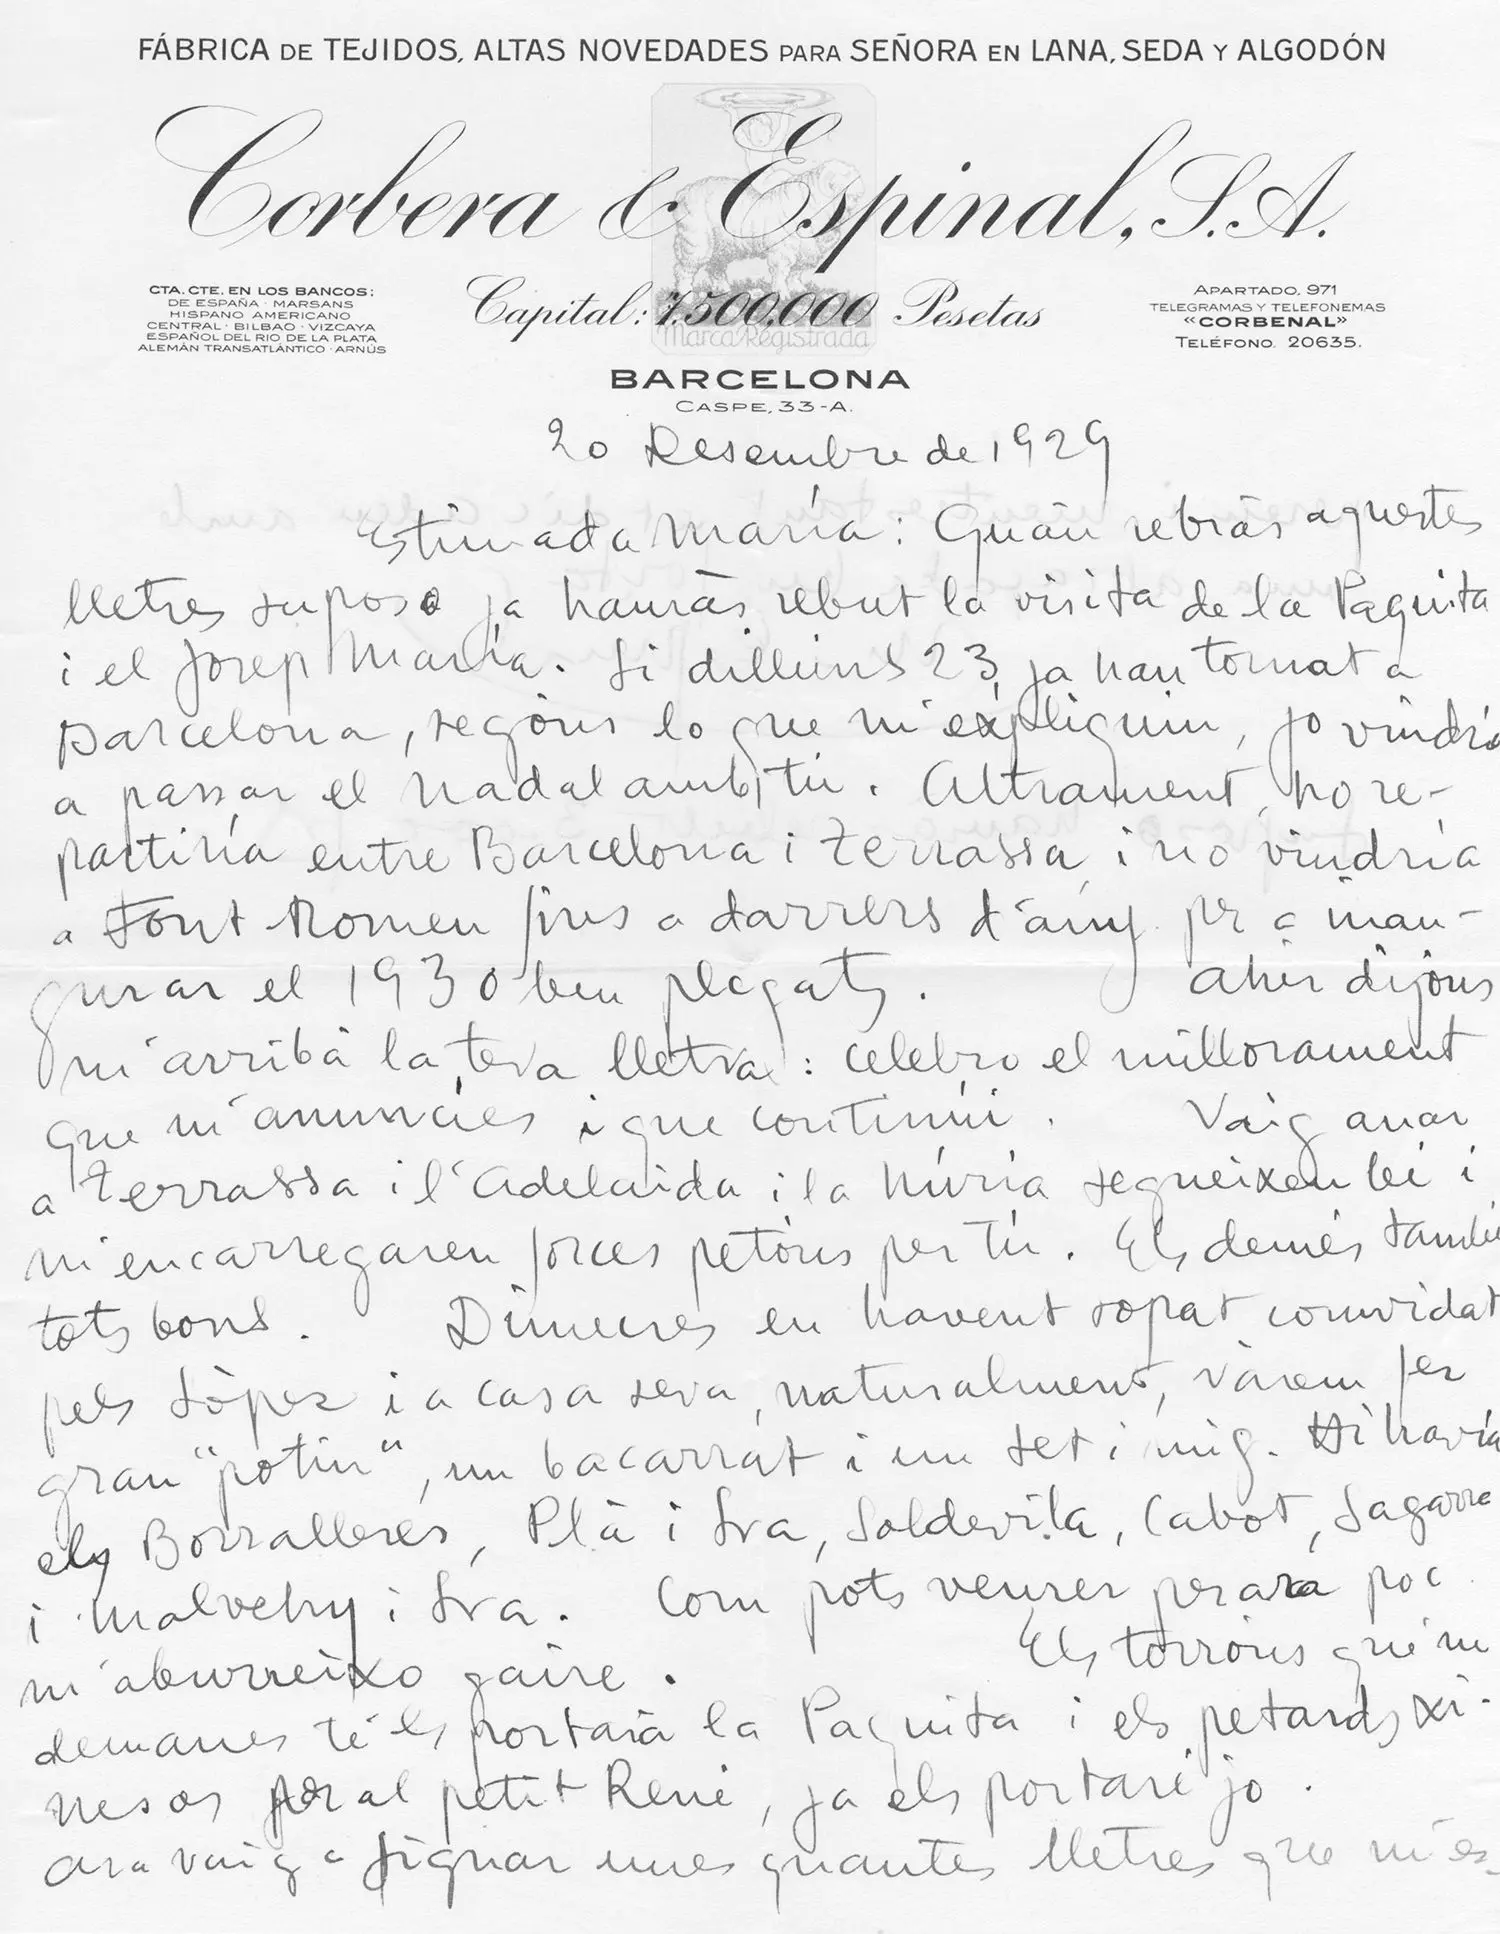 FÁBRICA DE TEJIDOS, ALTAS NOVEDADES PARA SEÑORA EN LANA, SEDA Y ALGODÓN
Corbera & Espinal, S.A.
CTA. CTE. EN LOS BANCOS:
DE ESPAÑA · MARSANS
HISPANO AMERICANO
CENTRAL · BILBAO · VIZCAYA
ESPAÑOL DEL RIO DE LA PLATA
ALEMÁN TRANSATLÁNTICO · ARNÚS
Capital: 7.500,000 Pesetas
Marca Registrada
APARTADO, 971
TELEGRAMAS Y TELEFONEMAS
«CORBENAL»
TELÉFONO. 20635.
BARCELONA
CASPE, 33-A.
20 Desembre de 1929
Estimada María: Quàn rebràs aquestes
lletres suposo ja hauràs rebut la visita de la Paquita
i el Josep María. Si dilluns 23 ja han tornat a
Barcelona, segòns lo que m'expliquin, jo vindré
a passar el Nadal amb tú. Altrament, ho re-
partiría entre Barcelona i Terrassa i no vindría
a Font Romeu fins a darrers d'any per a inau-
gurar el 1930 ben plegats. Ahir dijòus
m'arribà la teva lletra: celebro el millorament
que m'anuncíes i que continúi. Vaig anar
a Terrassa i l'Adelaida i la Núria segueixen bé i
m'encarregaren forces petòns per tú. Els demés també
tots bons. Dimecres en havent sopat convidat
pels López i a casa seva, naturalment, vàrem fer
gran "potin", un bacarrat i un set i mig. Hi havía
els Borralleres, Plà i Sra, Soldevila, Cabot, Sagarra
i Malvehy i Sra. Com pots veurer perara poc
m'aburreixo gaire. Els torròns que'm
demanes te'ls portarà la Paquita i els petards xi-
nesos per al petit René, ja els portaré jo.
Ara vaig a signar unes quantes lletres que m'es-